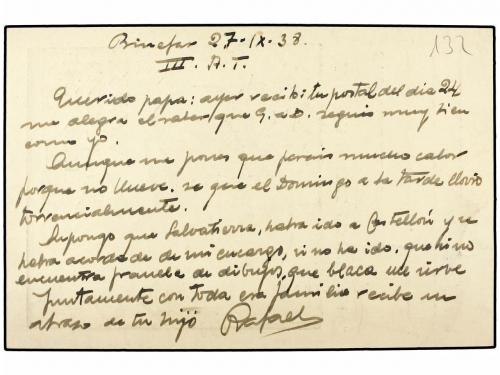 Binefar 27-IX-38.
132
III. A.T.
Querido papa: ayer recibi tu postal del dia 24
me alegra el saber que G. a D. seguis muy bien
como yo.
Aunque me pones que pasais mucho calor
porque no llueve. se que el Domingo a la tarde llovio
torrencialmente.
Supongo que Salvatierra, habra ido a Castellón y se
habra acordado de mi encargo, si no ha ido, que si no
encuentra de dibujos, que blaca me sirve
Juntamente con toda esa familia recibe un
abrazo de tu hijo Rafael